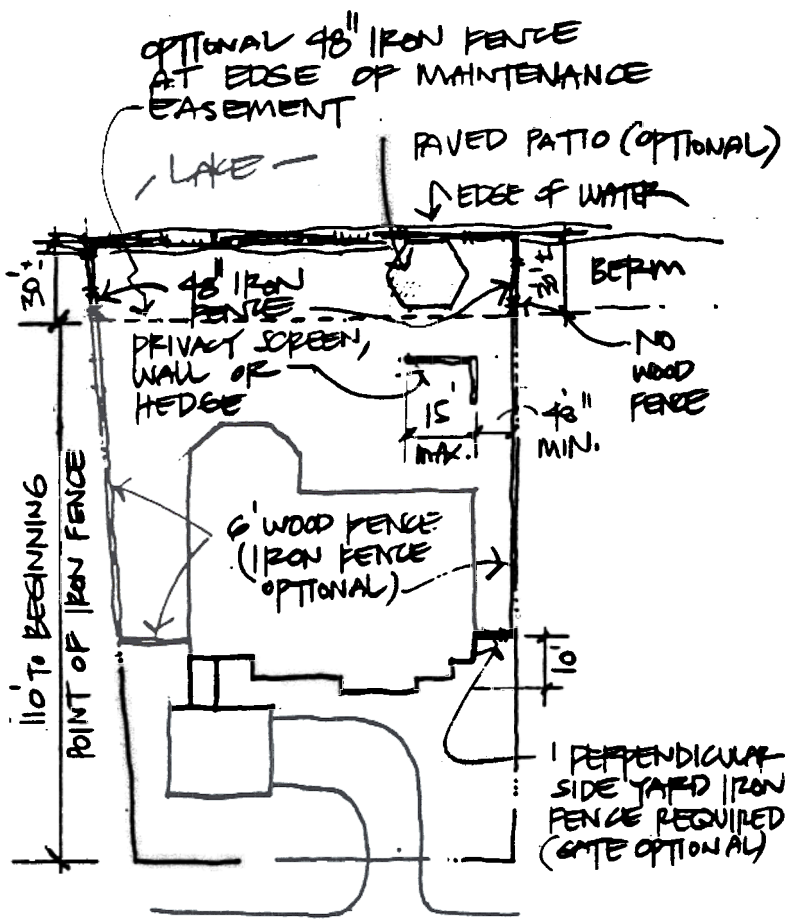 OPTIONAL 48" IRON FENCE
AT EDGE OF MAINTENANCE
EASEMENT
LAKE
PAVED PATIO (OPTIONAL)
EDGE OF WATER
30'±
48" IRON
FENCE
30'±
BERM
PRIVACY SCREEN,
WALL OR
HEDGE
NO
WOOD
FENCE
15'
MAX.
48"
MIN.
110' TO BEGINNING
POINT OF IRON FENCE
6' WOOD FENCE
(IRON FENCE
OPTIONAL)
10'
1 PERPENDICULAR
SIDE YARD IRON
FENCE REQUIRED
(GATE OPTIONAL)